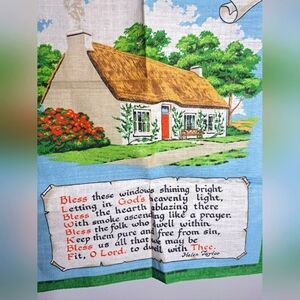 Bless these windows shining bright
Letting in God's heavenly light,
Bless the hearth ablazing there
With smoke ascending like a prayer.
Bless the folk who dwell within
Keep them pure and free from sin,
Bless us all that we may be
Fit, O Lord. to dwell with Thee.
Helen Taylor